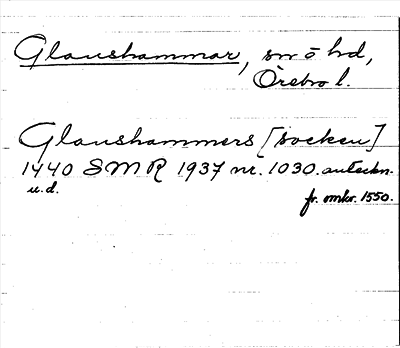 Glanshammar, sn ō hd,
Örebro l.
Glanshammers [socken]
1440 SMR 1937 nr. 1030. anteckn.
u.d. fr. omkr. 1550.